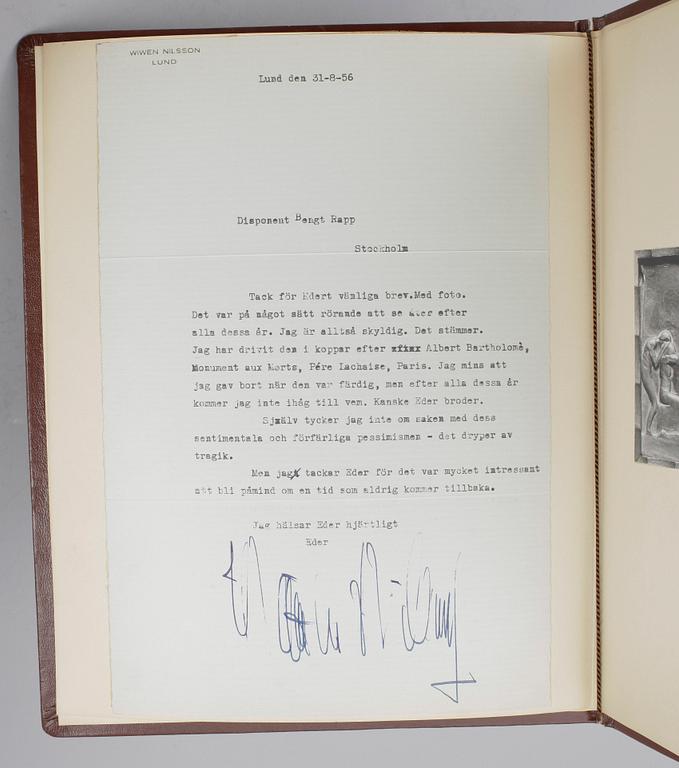 WIWEN NILSSON
LUND
Lund den 31-8-56
Disponent Bengt Rapp
Stockholm
Tack för Edert vänliga brev.Med foto.
Det var på något sätt rörande att se åter efter
alla dessa år. Jag är alltså skyldig. Det stämmer.
Jag har drivit den i koppar efter Albert Bartholomè,
Monument aux Morts, Pére Lachaise, Paris. Jag mins att
jag gav bort när den var färdig, men efter alla dessa år
kommer jag inte ihåg till vem. Kanske Eder broder.
Själv tycker jag inte om saken med dess
sentimentala och förfärliga pessimismen - det dryper av
tragik.
Men jag tackar Eder för det var mycket intressant
att bli påmind om en tid som aldrig kommer tillbaka.
Jag hälsar Eder hjärtligt
Eder